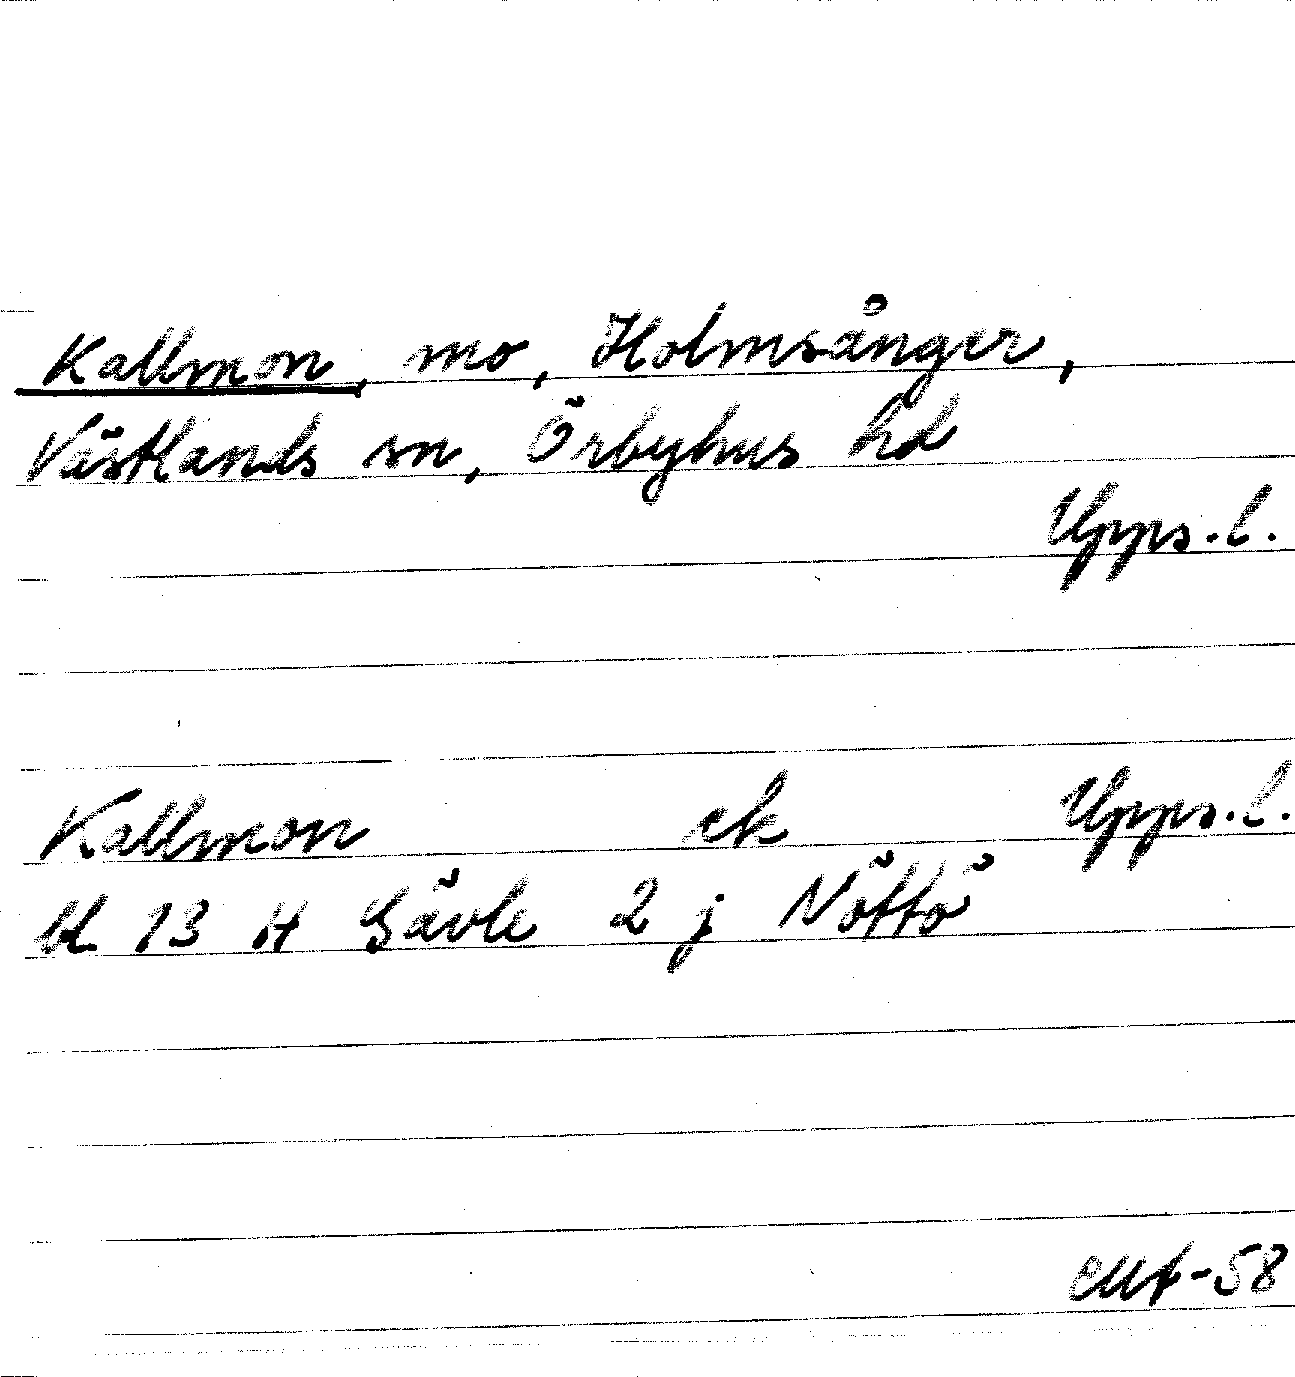 Kallmon, mo, Holmsånger,
Västlands sn, Örbyhus hd
Upps.l.
Kallmon ek Upps.l.
bl. 13 H Gävle 2 j Nöttö
EMt-58